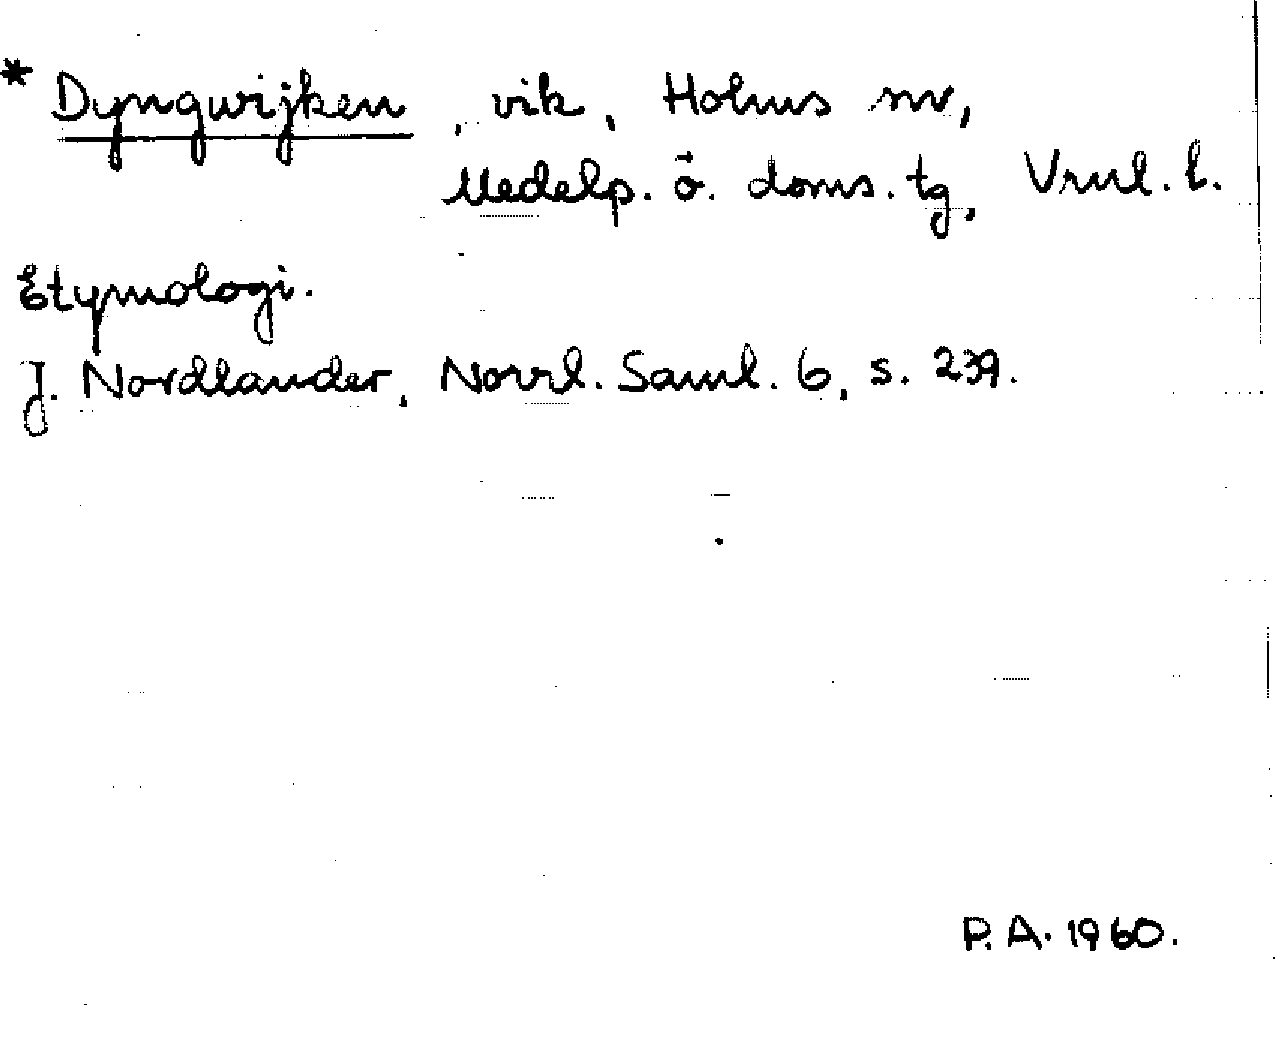 * Dyngwijken, vik, Holms sn,
Medelp. ö. doms. tg, Vrnl. l.
Etymologi.
J. Nordlander, Norrl. Saml. 6, s. 239.
P. A. 1960.